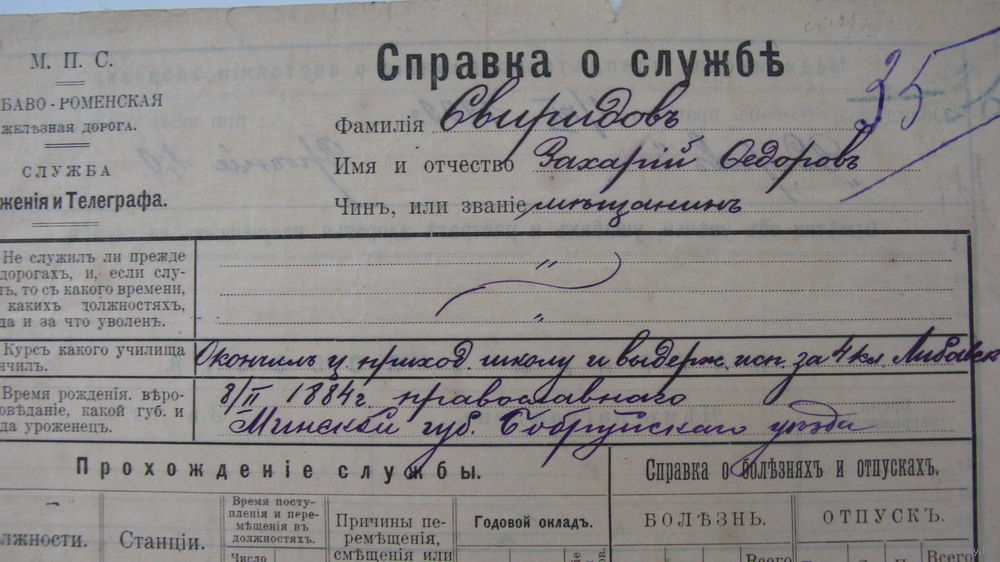 М. П. С.
БАВО-РОМЕНСКАЯ
ЖЕЛѢЗНАЯ ДОРОГА.
СЛУЖБА
жения и Телеграфа.
Справка о службѣ
35
Фамилія Свиридовъ
Имя и отчество Захарій Ѳедоровъ
Чинъ, или званіе мѣщанинъ
Не служилъ ли прежде
дорогахъ, и, если слу-
ъ, то съ какого времени,
какихъ должностяхъ,
да и за что уволенъ.
Курсъ какого училища
нчилъ.
Окончилъ ц. приход. школу и выдерж. исп. за 4 кл. Либавск
Время рожденія. вѣро-
овѣданіе, какой губ. и
да уроженецъ.
8/II 1884 г православнаго
Минской губ. Бобруйскаго уѣзда
Прохожденіе службы.
Справка о болѣзняхъ и отпускахъ.
лжности.
Станціи.
Время посту-
пленія и пере-
мѣщенія въ
должностяхъ.
Число
Причины пе-
ремѣщенія,
смѣщенія или
Годовой окладъ.
БОЛѢЗНЬ.
ОТПУСКЪ.
Всего
Всего